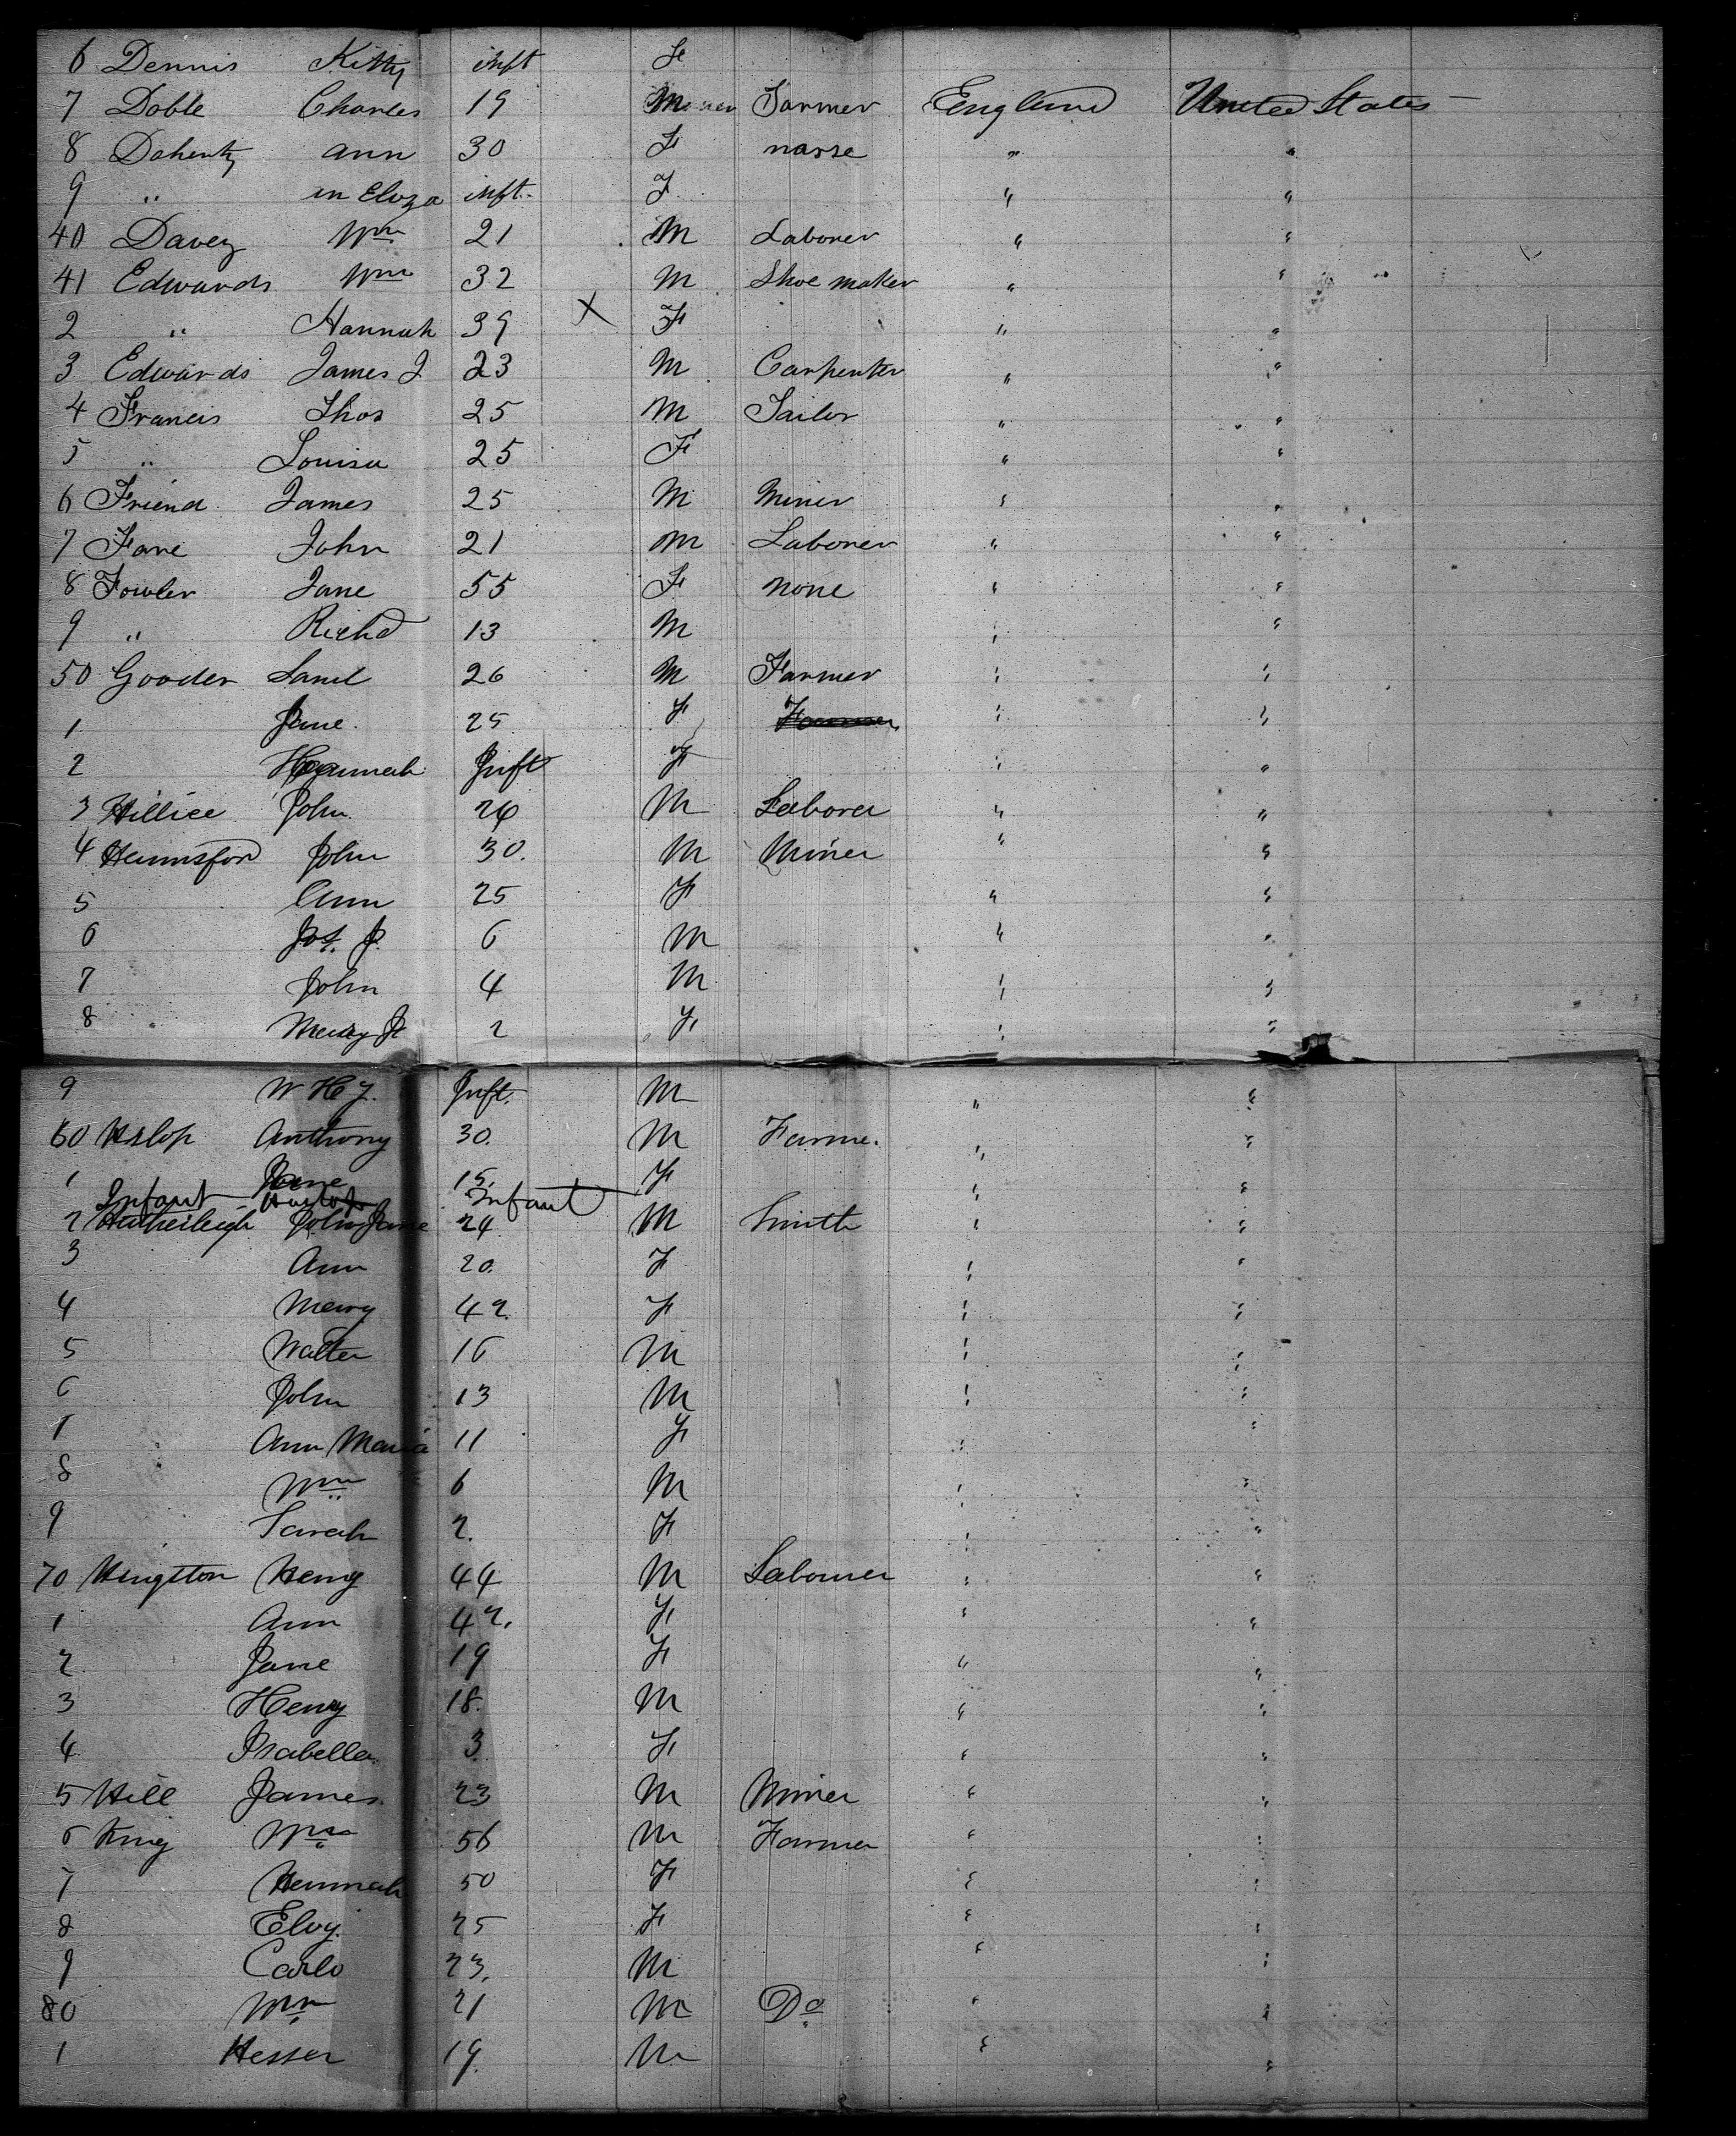 6 Dennis Kitty inft F
7 Doble Charles 19 M Farmer England United States
8 Dohenty Ann 30 F " "
9 " in Eliza inft. F " "
40 Davey Wm 21 M Laborer " "
41 Edwards Wm 32 M Shoe maker " "
2 " Hannah 39 X F " "
3 Edwards James J 23 M Carpenter " "
4 Francis Thos 25 M Tailor " "
5 " Louisa 25 F " "
6 Friend James 25 M Miner " "
7 Fane John 21 M Laborer " "
8 Fowler Jane 55 F none " "
9 " Richd 13 M " "
50 Gooder Saml 26 M Farmer " "
1 Jane 25 F Farmer " "
2 Hannah Inft F " "
3 Hillice John 24 M Laborer " "
4 John 30. M Miner " "
5 Ann 25 F " "
6 Jos. J. 6 M " "
7 John 4 M " "
8 Mary J 2 F " "
9 W Hy. Inft. M " "
60 Anthony 30. M Farme. " "
1 Jane 15. F " "
Infant Infant
2 Hatherleigh John 24 M Smith " "
3 Ann 20. F " "
4 Mary 42. F " "
5 Walter 16 M " "
6 John 13 M " "
7 Ann Maria 11 F " "
8 Wm 6 M " "
9 Sarah 2. F " "
70 Hingston Henry 44 M Labourer " "
1 Ann 42. F " "
2 Jane 19 F " "
3 Henry 18. M " "
4 Isabella 3. F " "
5 Hill James 23 M Miner " "
6 King Wm 56 M Farmer " "
7 Hannah 50 F " "
8 25 F " "
9 Carlo 23. M " "
80 Wm 21 M Do " "
1 Hesser 19. M " "